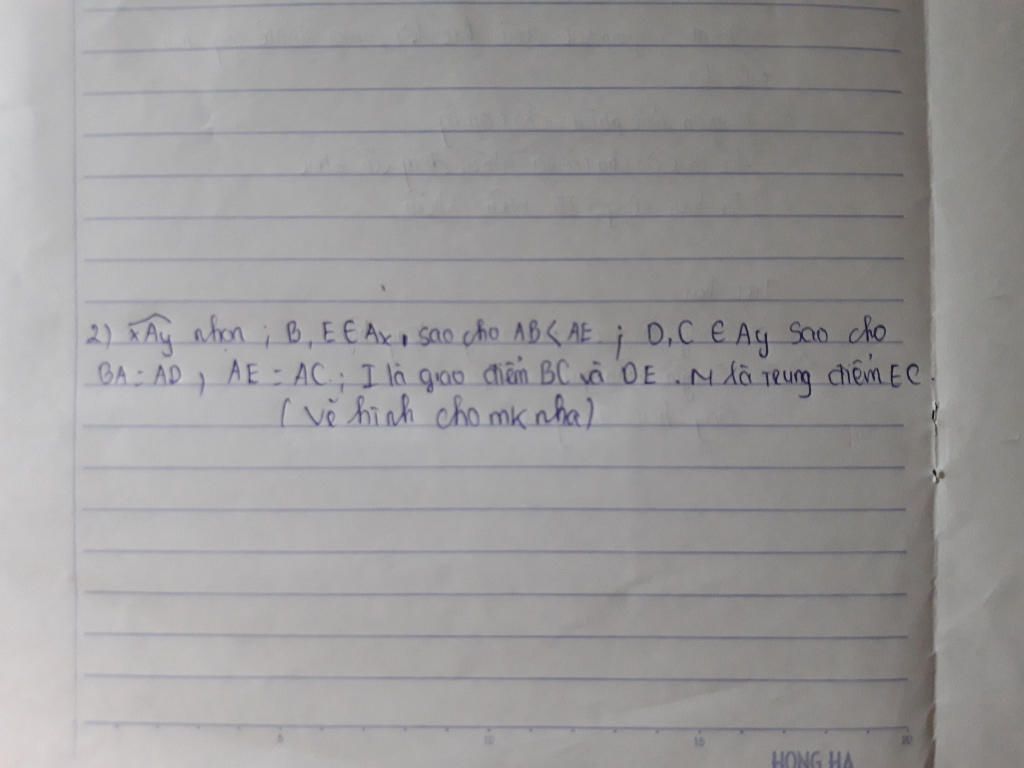 2) xAy nhọn ; B, E ∈ Ax, sao cho AB < AE ; D, C ∈ Ay sao cho
BA = AD, AE = AC ; I là giao điểm BC và DE. N là trung điểm EC.
(Vẽ hình cho mk nha)
5 10 15 20
HONG HA